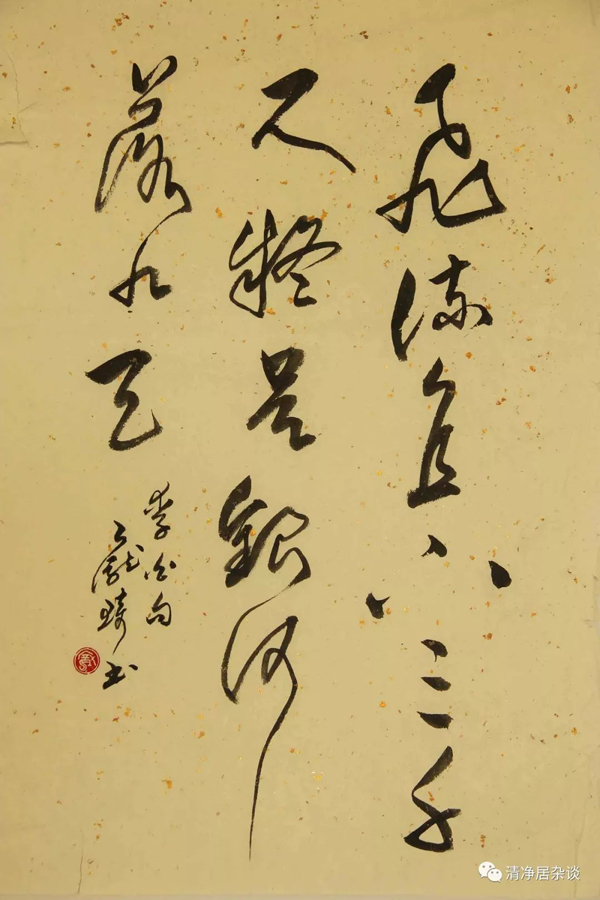 飛流直下三千
尺疑是銀河
落九天
李白句
书
清净居杂谈